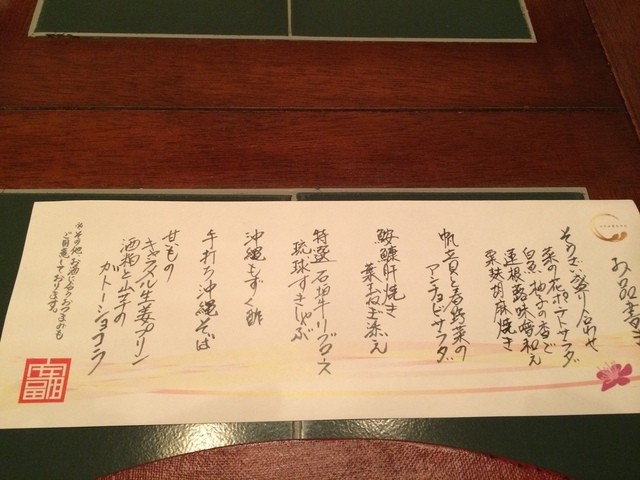 お品書き
そのさい盛り合わせ
菜の花ポテトサラダ
白魚 柚子の香で
蓮根蕗味噌和え
粟麩胡麻焼き
帆立貝と春野菜の
アンチョビサラダ
鮟鱇肝焼き
葉玉ねぎ添え
特選石垣牛リブロース
琉球すきしゃぶ
沖縄もずく酢
手打ち沖縄そば
甘もの
キャラメル生姜プリン
酒粕と山芋の
ガトーショコラ
※その他お酒に合うおつまみも
ご用意しております。